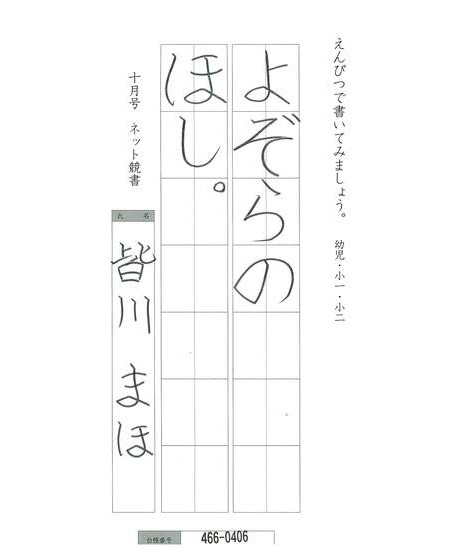 えんぴつで書いてみましょう。　幼児・小一・小二
よぞらの
ほし。
十月号　ネット競書
氏名
皆川　まほ
台帳番号
466-0406